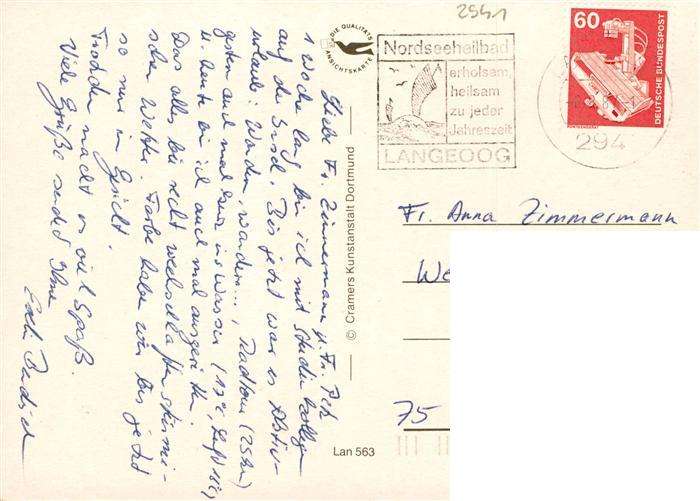 2941
DIE QUALITÄTS
ANSICHTSKARTE
Nordseeheilbad
erholsam,
heilsam
zu jeder
Jahreszeit
LANGEOOG
294
60
DEUTSCHE BUNDESPOST
Liebe Fr. Zimmermann u. Fr.
1 Woche lang bin ich mit Studienkollegen
auf der Insel. Bis jetzt war es Aktiv-
urlaub: Wandern, wandern..., Radtour (25km)
gestern auch mal kurz ins Wasser (17°, Luft
u. heute bin ich auch mal ausgeritten.
Das alles bei recht wechselhaftem stürmi-
schen Wetter. Farbe habe wir bis jetzt
so nur im Gesicht.
Trotzdem macht es viel Spaß.
Viele Grüße sendet Ihnen
© Cramers Kunstanstalt Dortmund
Lan 563
Fr. Anna Zimmermann
We
75